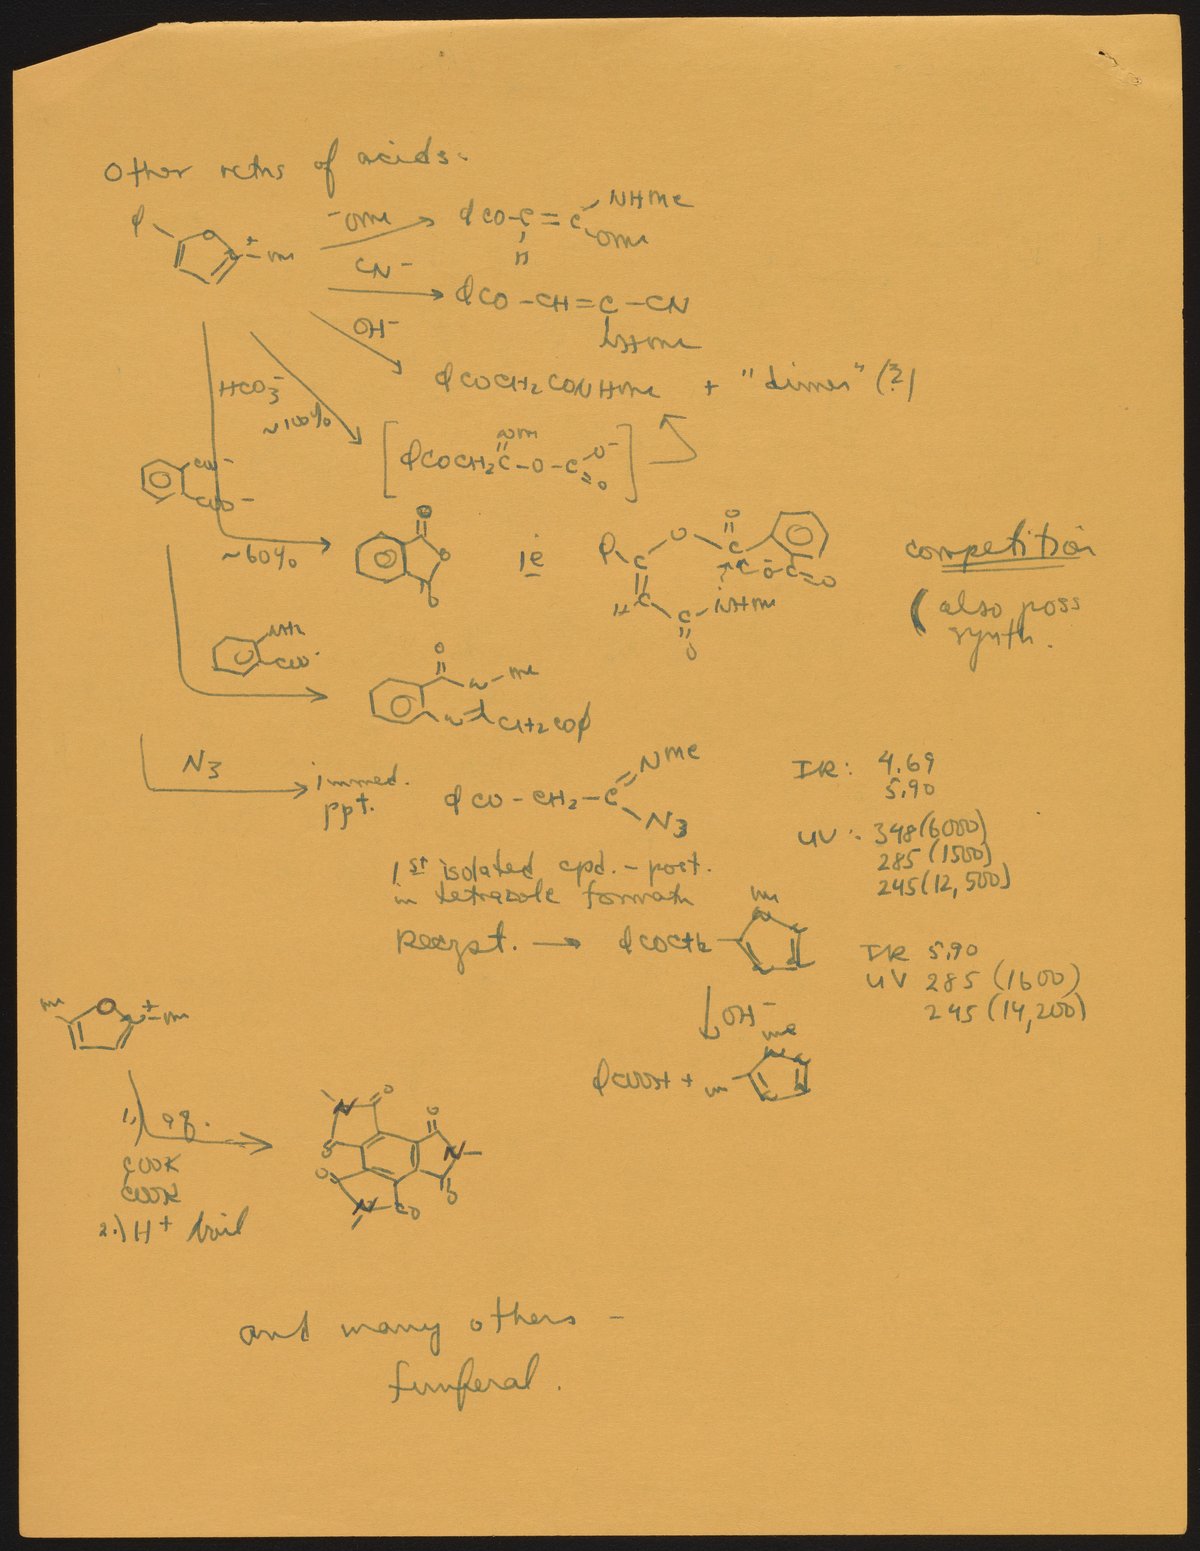 Other rctns of acids:
φ
O
+
N-Me
-OMe
φCO-C=C
H
NHMe
OMe
CN-
φCO-CH=C-CN
NHMe
OH-
φCOCH2CONHMe + "dimer" (?)
HCO3-
~100%
[φCOCH2C-O-C
NMe
O-
O]
COO-
COO-
~60%
O
O
O
ie
φ-C
O
C
O
C
H
C
O
NHMe
O-
C=O
competition
(also poss
synth.
NH2
COO-
O
N-Me
N
CH2COφ
N3
immed.
ppt.
φCO-CH2-C
NMe
N3
IR: 4.69
5.90
UV: 348(6000)
285(1500)
245(12,500)
1st isolated cpd. - post.
in tetrazole formatn
Recryst. → φCOCH2
Me
N
IR 5.90
UV 285 (1600)
245 (14,200)
OH-
φCOOH + Me
Me
N
Me
O
+
N-Me
1.) aq.
COOK
COOK
2.) H+ boil
N
O
O
O
N
O
O
N
CO
and many others -
funferal.